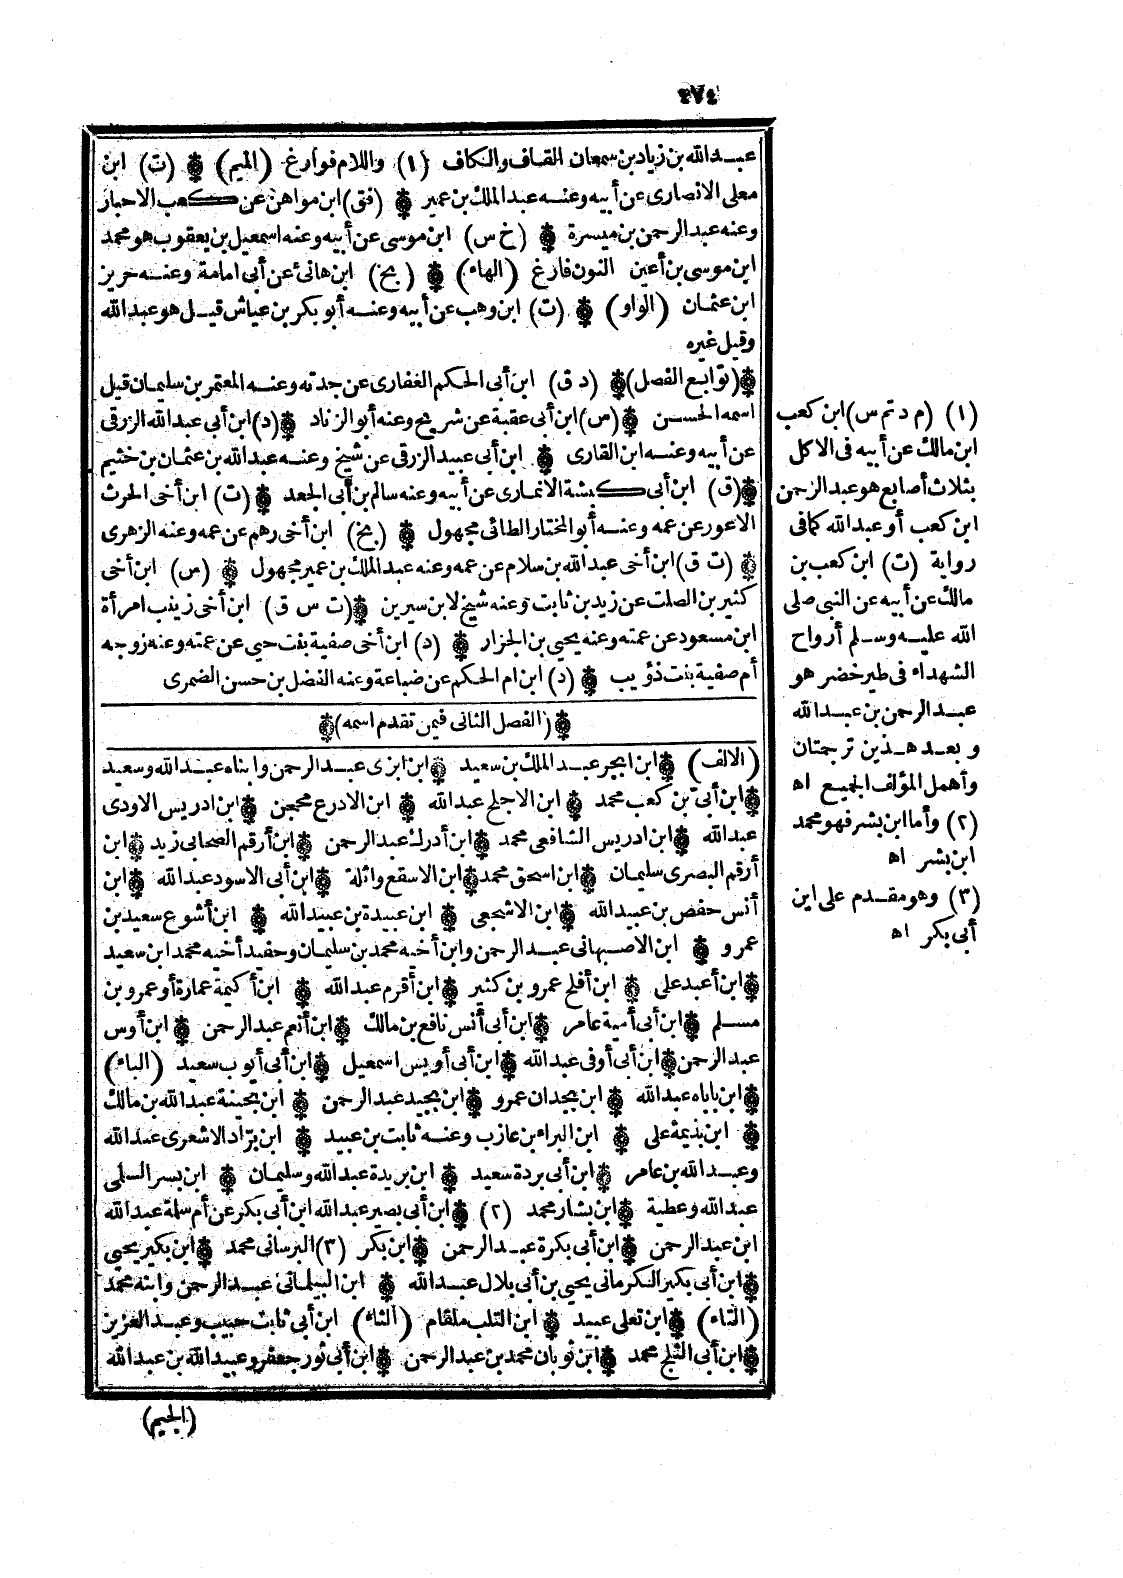 ٤٧٤
عبد الله بن زياد بن سمعان القاف والكاف (١) واللام فوارغ (الميم) (ت) ابن
معلى الانصارى عن أبيه وعنه عبد الملك بن عمير (فق) ابن مواهن عن كعب الاحبار
وعنه عبد الرحمن بن ميسرة (خ س) ابن موسى عن أبيه وعنه اسمعيل بن يعقوب هو محمد
ابن موسى بن أعين النون فارغ (الهاء) (بخ) ابن هانئ عن أبى امامة وعنه حريز
ابن عثمان (الواو) (ت) ابن وهب عن أبيه وعنه أبو بكر بن عياش قيل هو عبد الله
وقيل غيره
(توابع الفصل) (د ق) ابن أبى الحكم الغفارى عن جدته وعنه المعتمر بن سليمان قيل
اسمه الحسن (س) ابن أبى عقبة عن شريح وعنه أبو الزناد (د) ابن أبى عبد الله الزرقى
عن أبيه وعنه ابن القارى ابن أبى عبيد الزرقى عن شيخ وعنه عبد الله بن عثمان بن خثيم
(ق) ابن أبى كبشة الانمارى عن أبيه وعنه سالم بن أبى الجعد (ت) ابن أخى الحرث
الاعور عن عمه وعنه أبو المختار الطائى مجهول (بخ) ابن أخى رهم عن عمه وعنه الزهرى
(ت ق) ابن أخى عبد الله بن سلام عن عمه وعنه عبد الملك بن عمير مجهول (س) ابن أخى
كثير بن الصلت عن زيد بن ثابت وعنه شيخ لابن سيرين (ت س ق) ابن أخى زينب امرأة
ابن مسعود عن عمته وعنه يحيى بن الجزار (د) ابن أخى صفية بنت حيى عن عمته وعنه زوجه
أم صفية بنت ذؤيب (د) ابن ام الحكم عن ضباعة وعنه الفضل بن حسن الضمرى
(الفصل الثانى فيمن تقدم اسمه)
(الالف) ابن ابجر عبد الملك بن سعيد ابن ابزى عبد الرحمن وابناه عبد الله وسعيد
ابن أبىّ بن كعب محمد ابن الاجلح عبد الله ابن الادرع محجن ابن ادريس الاودى
عبد الله ابن ادريس الشافعى محمد ابن أدرك عبد الرحمن ابن أرقم الصحابى زيد ابن
أرقم البصرى سليمان ابن اسحق محمد ابن الاسقع واثلة ابن أبى الاسود عبد الله ابن
أنس حفص بن عبيد الله ابن الاشجعى ابن عبيدة بن عبيد الله ابن أشوع سعيد بن
عمرو ابن الاصبهانى عبد الرحمن وابن أخيه محمد بن سليمان وحفيد أخيه محمد ابن سعيد
ابن أعبد على ابن أفلح عمرو بن كثير ابن أقرم عبد الله ابن أكيمة عمارة أو عمرو بن
مسلم ابن أبى أمية عامر ابن أبى أنس نافع بن مالك ابن أنعم عبد الرحمن ابن أوس
عبد الرحمن ابن أبى أوفى عبد الله ابن أبى أويس اسمعيل ابن أبى أيوب سعيد (الباء)
ابن باباه عبد الله ابن بجدان عمرو ابن بجيد عبد الرحمن ابن بحينة عبد الله بن مالك
ابن بذيمة على ابن البراء بن عازب وعنه ثابت بن عبيد ابن برّاد الاشعرى عبد الله
وعبد الله بن عامر ابن أبى بردة سعيد ابن بريدة عبد الله وسليمان ابن بسر السلمى
عبد الله وعطية ابن بشار محمد (٢) ابن أبى بصير عبد الله ابن أبى بكر عن أم سلمة عبد الله
ابن عبد الرحمن ابن أبى بكرة عبد الرحمن ابن بكر (٣) البرسانى محمد ابن بكير يحيى
ابن أبى بكير الكرمانى يحيى بن أبى بلال عبد الله ابن البيلمانى عبد الرحمن وابنه محمد
(التاء) ابن تعلى عبيد ابن التلب ملقام (الثاء) ابن أبى ثابت حبيب وعبد العزيز
ابن أبى الثلج محمد ابن ثوبان محمد بن عبد الرحمن ابن أبى ثور جعفر وعبيد الله بن عبد الله
(الجيم)
(١) (م د تم س) ابن كعب
ابن مالك عن أبيه فى الاكل
بثلاث أصابع هو عبد الرحمن
ابن كعب أو عبد الله كما فى
رواية (ت) ابن كعب بن
مالك عن أبيه عن النبى صلى
الله عليه وسلم أرواح
الشهداء فى طير خضر هو
عبد الرحمن بن عبد الله
وبعد هذين ترجمتان
وأهمل المؤلف الجميع اه
(٢) وأما ابن بشر فهو محمد
ابن بشر اه
(٣) وهو مقدم على ابن
أبى بكر اه